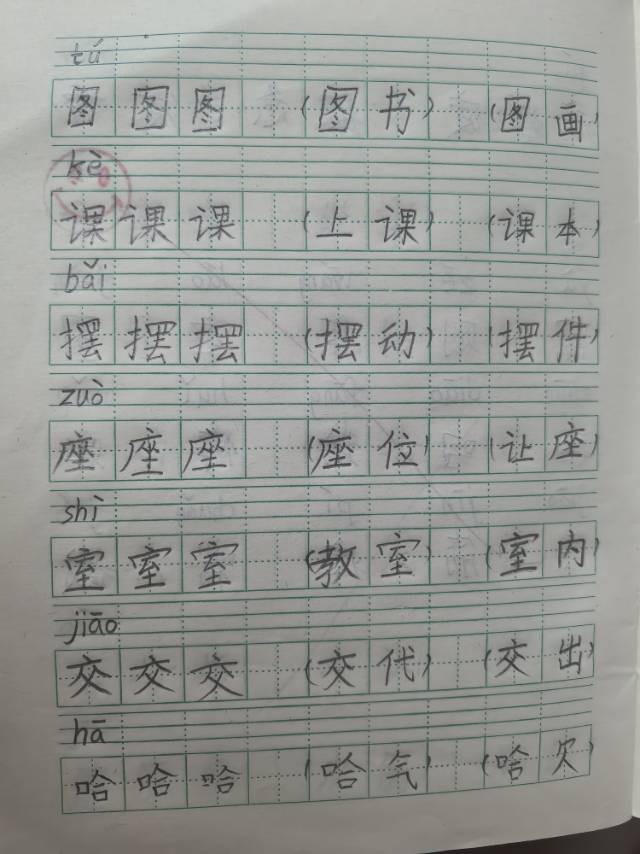 tú
图图图(图书)(图画)
kè
课课课(上课)(课本)
bǎi
摆摆摆(摆动)(摆件)
zuò
座座座(座位)(让座)
shì
室室室(教室)(室内)
jiāo
交交交(交代)(交出)
hā
哈哈哈(哈气)(哈欠)